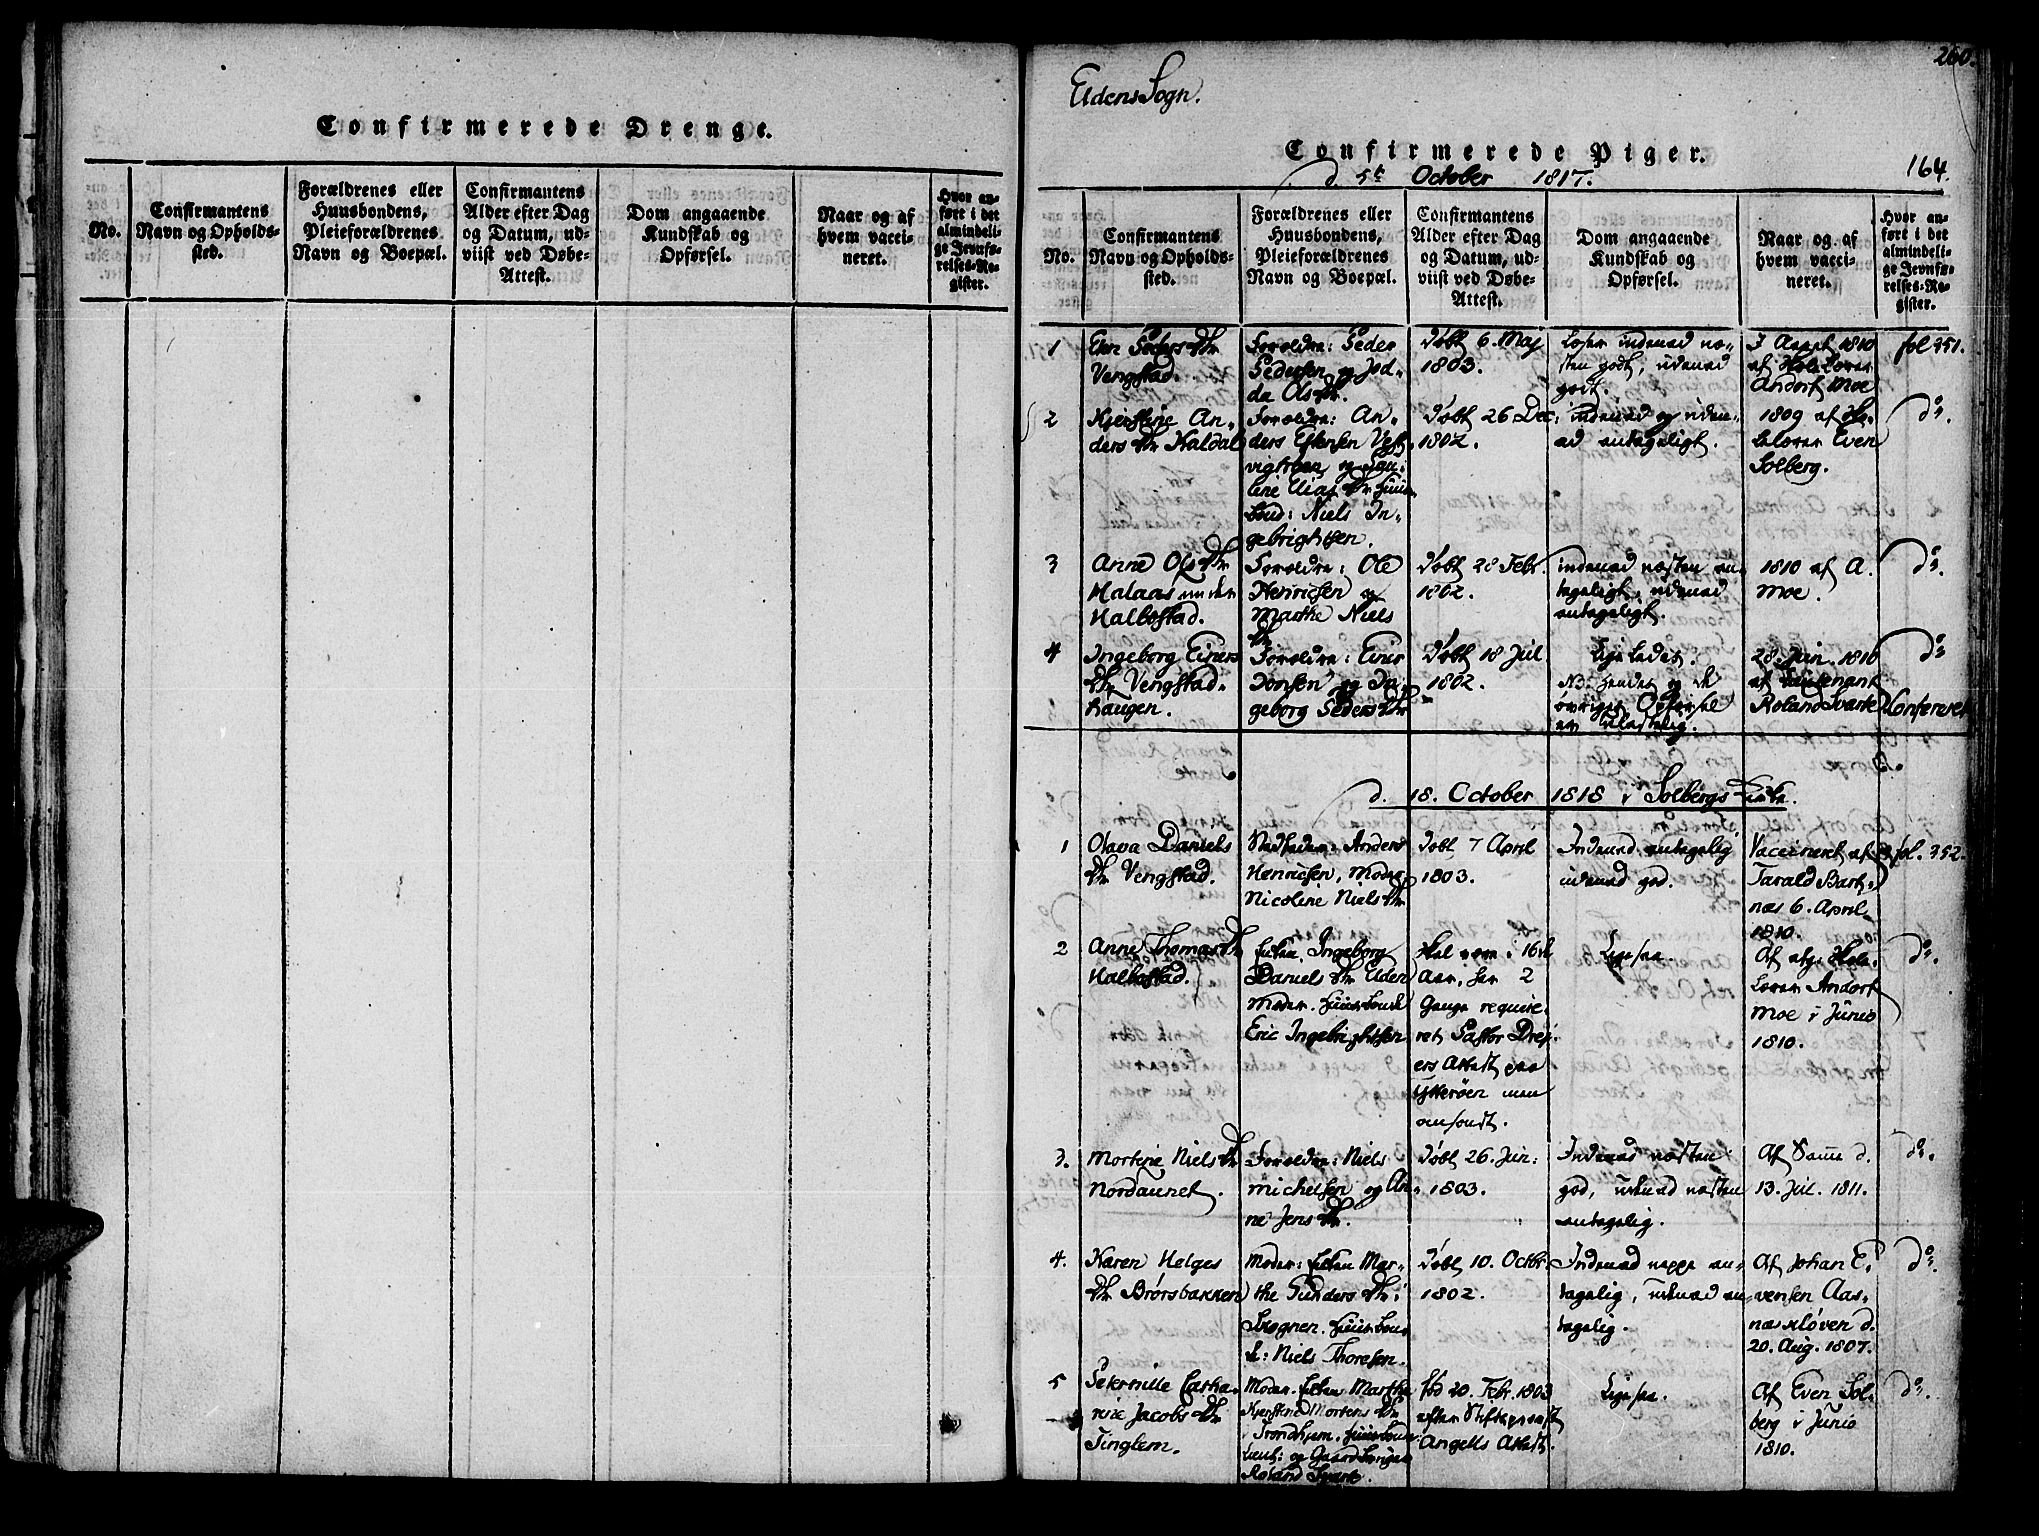 Confirmerede Drenge.
No.
Confirmantens
Navn og Opholds-
sted.
Forældrenes eller
Huusbondens,
Pleieforældrenes
Navn og Boepæl.
Confirmantens
Alder efter Dag
og Datum, ud-
viist ved Døbe-
Attest.
Dom angaaende
Kundskab og
Opførsel.
Naar og af
hvem vacci-
neret.
Hvor an-
ført i det
almindeli-
ge Jevnfø-
relses-Re-
gister.
260.
Eldens Sogn.
Confirmerede Piger.
d. 5te October 1817.
164.
No.
Confirmantens
Navn og Opholds-
sted.
Forældrenes eller
Huusbondens,
Pleieforældrenes
Navn og Boepæl.
Confirmantens
Alder efter Dag
og Datum, ud-
viist ved Døbe-
Attest.
Dom angaaende
Kundskab og
Opførsel.
Naar og af
hvem vacci-
neret.
Hvor an-
ført i det
almindeli-
ge Jevnfø-
relses-Re-
gister.
1
Peders Dtr
Vengstad.
Forældre: Peder
Pedersen og
Ols Dtr.
Døbt 6. Maj
1803.
Læser indenad næ-
sten godt, udenad
godt.
1810
af Skolelærer
Andorf Moe
fol 351.
2
Kjerstine An-
ders Dtr Kaldal
Forældre: An-
ders Estensen
og
Elias Dtr Huus-
bond: Niels In-
gebrightsen.
Døbt 26 Dec:
1802.
indenad og uden-
ad antageligt.
1809 af Sko-
lelærer Even
Solberg.
do.
3
Anne Ols Dtr
Malaas under
Halbostad.
Forældre: Ole
Henricsen og
Marthe Niels
Dtr
Døbt 28 Febr.
1802.
indenad næsten an-
tageligt, udenad
antageligt.
1810 af A.
Moe.
do.
4
Ingeborg Einers
Dtr Vengstad-
haugen.
Forældre: Einer
Jonsen og In-
geborg Peders Dtr
Døbt 18 Jul.
1802.
Ligeledes.
NB: Hendes og de
øvriges Opførsel
er ulastelig.
28. Jun. 1810
af Lieutenant
Roland Svarte
do
Confereret
d. 18. October 1818 i Solbergs Kirke.
1
Olava Daniels
Dtr Vengstad.
Stedfader: Anders
Henricsen, Moder
Nicoline Niels Dtr
Døbt 7 April
1803.
Indenad antagelig
udenad god.
Vaccineret af
Tarald Bart-
næs 6. April
1810.
fol. 352.
2
Anne Thomas Dtr
Halbostad.
Enken Ingeborg
Daniels Dtr Elden
Moder. Huusbond
Eric Ingebrightsen
Skal være i 16de
Aar, har 2
Gange require-
ret Pastor Drej-
ers Attest paa
Ytterøen men
omsonst.
Ligesaa.
Af afg. Skole-
lærer Andorf
Moe i Junio
1810.
do.
3.
Mortine Niels Dtr
Nordaunet.
Forældre: Niels
Michelsen og An-
ne Jens Dtr.
Døbt 26. Jun:
1803.
Indenad næsten
god, udenad næsten
antagelig.
Af Samme d.
13. Jul. 1811.
do.
4.
Karen Helges
Dtr Børsbakken
Moder: Enken Mar-
the Gunders Dtr i
Huusbon-
d: Niels Thoresen.
Døbt 10. Octbr.
1802.
Indenad neppe an-
tagelig, udenad an-
tagelig.
Af Johan E-
vensen Aas-
næskløven d.
20. Aug. 1807.
do.
5
Peternille Catha-
rine Jacobs Dtr
Tinglem.
Moder. Enken Marthe
Kjerstine Mortens Dtr
i Trondhjem. Huusbond:
Lieut: og Gaardbruger
Roland Svarte.
fød 20. Febr. 1803
efter Stiftsprovst
Angells Attest.
Ligesaa.
Af Even Sol-
berg i Junio
1810.
do.